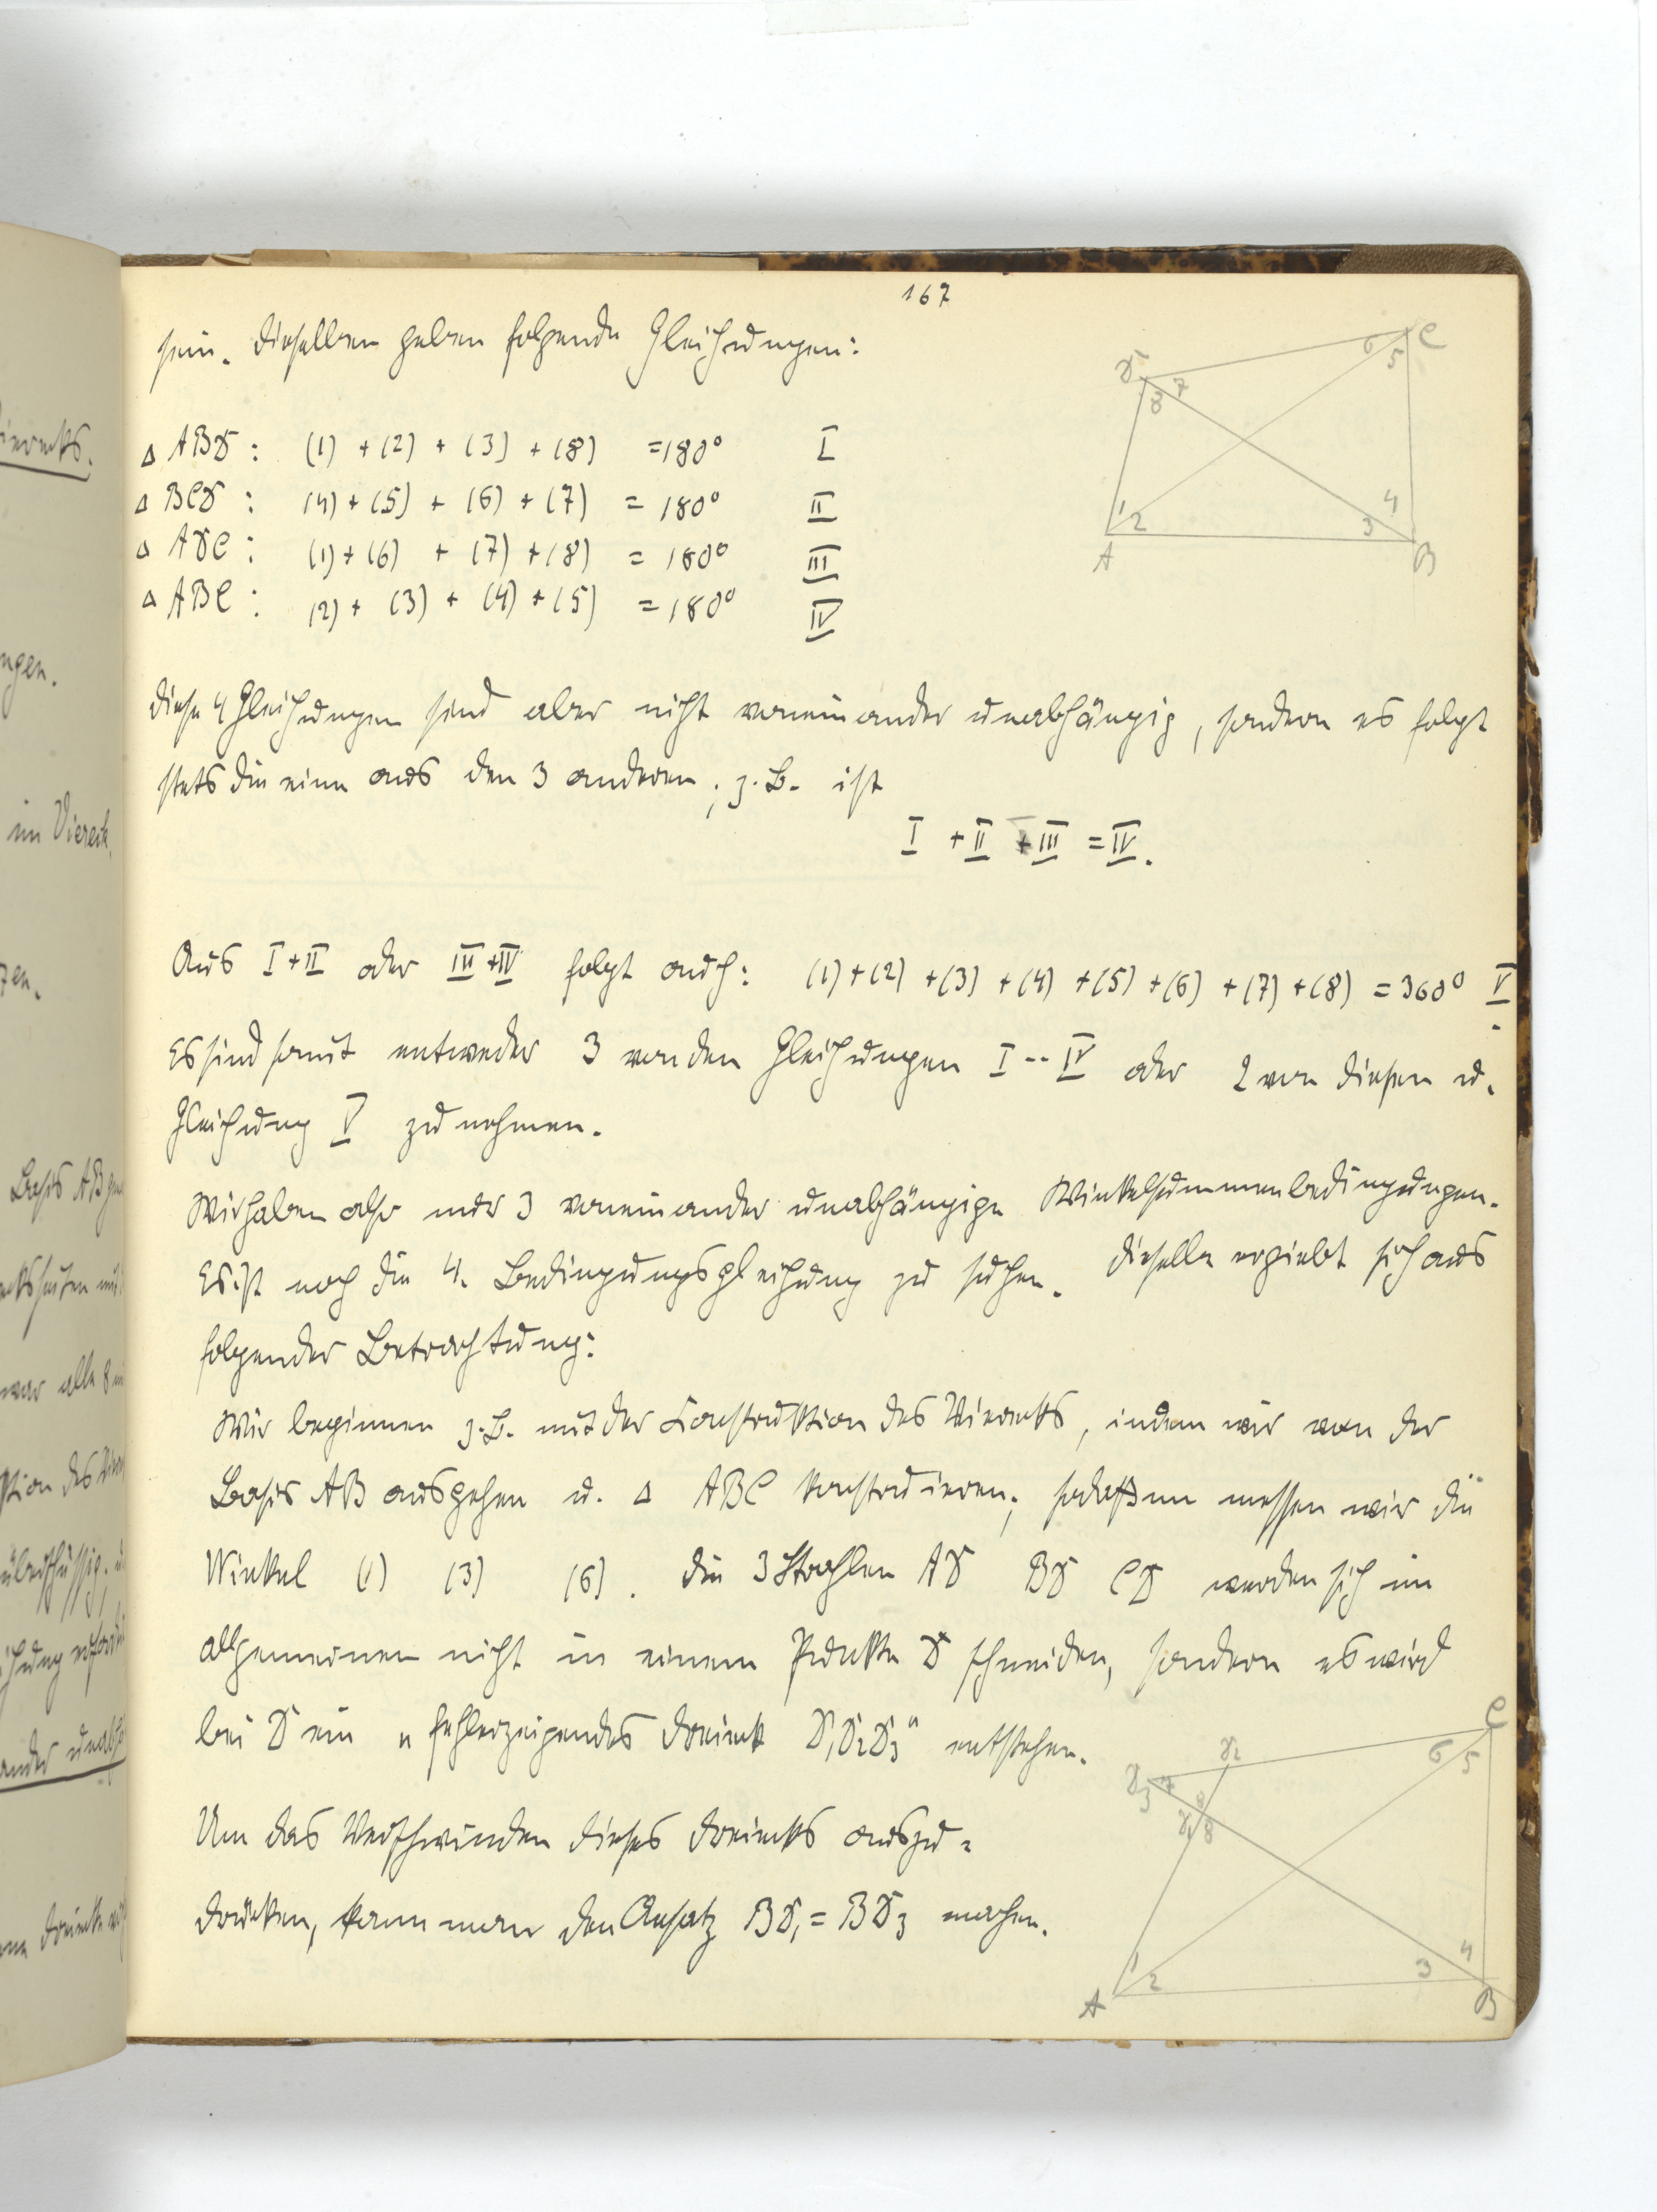 167
sein. Dieselben geben folgende Gleichungen:
D C 6 5 7 8 1 2 3 4 A B
Δ ABD : (1) + (2) + (3) + (8) = 180° I
Δ BCD : (4) + (5) + (6) + (7) = 180° II
Δ ADC : (1) + (6) + (7) + (8) = 180° III
Δ ABC : (2) + (3) + (4) + (5) = 180° IV
Diese 4 Gleichungen sind aber nicht voneinander unabhängig, sondern es folgt
stets die eine aus den 3 anderen; z. B. ist
I + II + III = IV.
Aus I + II oder III + IV folgt auch: (1) + (2) + (3) + (4) + (5) + (6) + (7) + (8) = 360° V.
Es sind somit entweder 3 von den Gleichungen I -- IV oder 2 von diesen u.
Gleichung V zu nehmen.
Wir haben also nur 3 voneinander unabhängige Winkelsummenbedingungen.
Es ist noch die 4. Bedingungsgleichung zu suchen. Dieselbe ergiebt sich aus
folgender Betrachtung:
Wir beginnen z. B. mit der Construktion des Vierecks, indem wir von der
Basis AB ausgehen u. Δ ABC konstruieren; sodann messen wir die
Winkel (1) (3) (6). Die 3 Strahlen AD BD CD werden sich im
allgemeinen nicht in einem Punkte D schneiden, sondern es wird
bei D ein „fehlerzeigendes Dreieck D1D2D3" entstehen.
Um das Verschwinden dieses Dreiecks auszu=
drücken, kann man den Ansatz BD1 = BD3 machen.
C D2 6 5 D3 7 D1 8 1 2 3 4 A B
ierecks.
ngen.
im Viereck
Basis AB